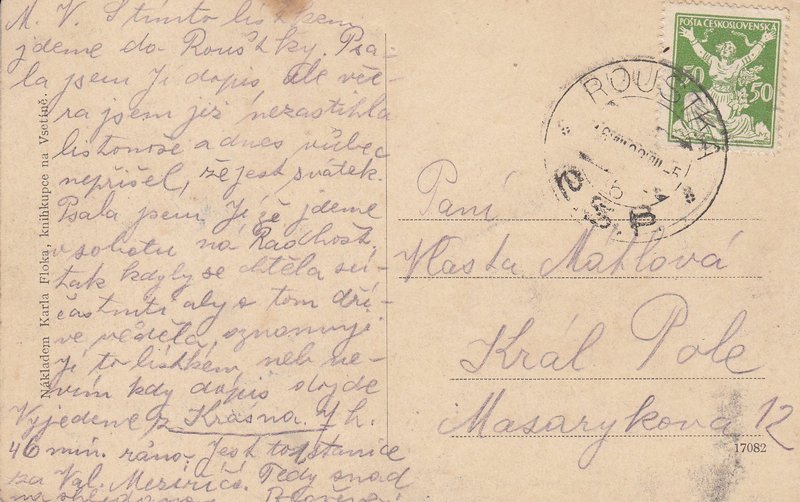 M. V. S tímto lístkem
jdeme do Rouštky. Psa-
la jsem Jí dopis, ale vče-
ra jsem již nezastihla
listonoše a dnes vůbec
nepřišel, že jest svátek.
Psala jsem Jí že jdeme
v sobotu na Radhošť,
tak kdyby se chtěla sú-
častniti aby o tom dří-
ve věděla, oznamuji
Jí to lístkem, neb ne-
vím kdy dopis dojde
Vyjedeme z Krásna 7 h.
46 min. ráno. Jest to stanice
za Val. Meziříčí. Tedy snad
na shledanou
Nákladem Karla Floka, knihkupce na Vsetíně.
POŠTA ČESKOSLOVENSKÁ
50 50
ROUŠTKA
Paní
Vlasta Máhlová
Král. Pole
Masarykova 12
17082